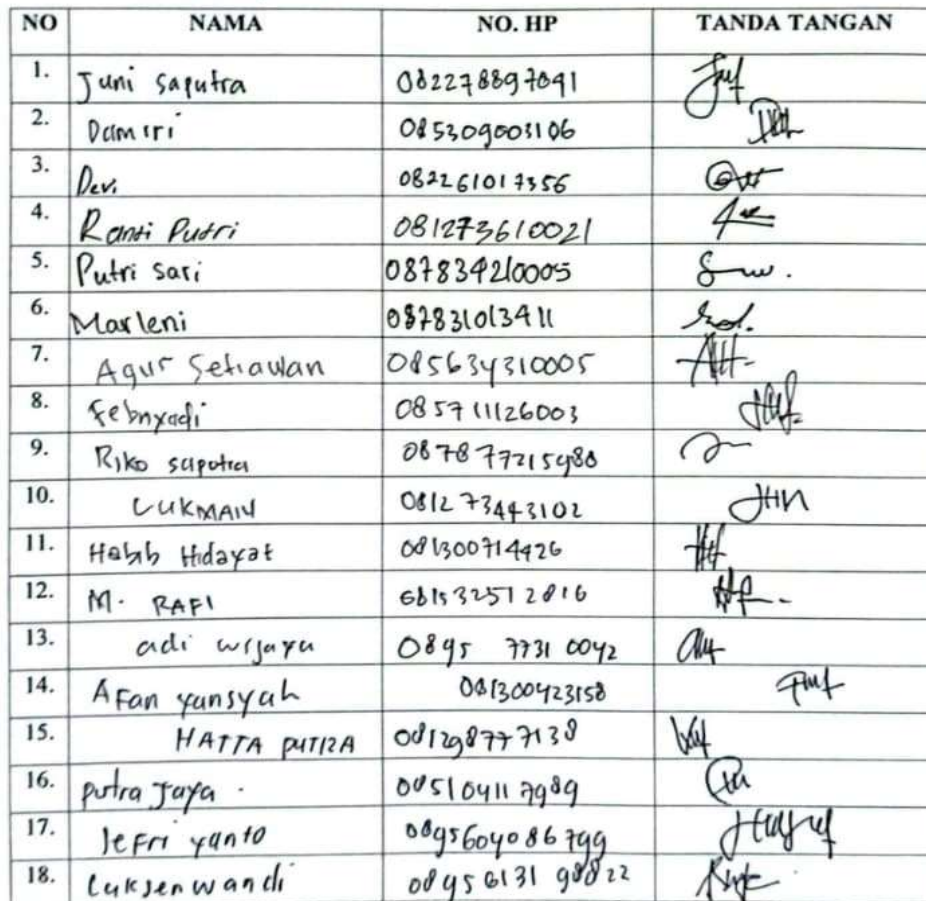 NO NAMA NO. HP TANDA TANGAN
1. Juni saputra 082278897091
2. Damsri 085309003106
3. Devi 082261017356
4. Ranti Putri 081273610021
5. Putri sari 087834210005
6. Marleni 087831013411
7. Agus Setiawan 085634310005
8. Febriyadi 085711126003
9. Riko saputra 087877215988
10. LUKMAN 081273443102
11. Habib Hidayat 081300714426
12. M. RAFI 081532512816
13. adi wijaya 0895 7731 0042
14. AFan yansyah 081300423158
15. HATTA PUTRA 081298777138
16. putra Jaya . 085104117989
17. Jefri yanto 0895604086799
18. Luksen wandi 08956131 98822